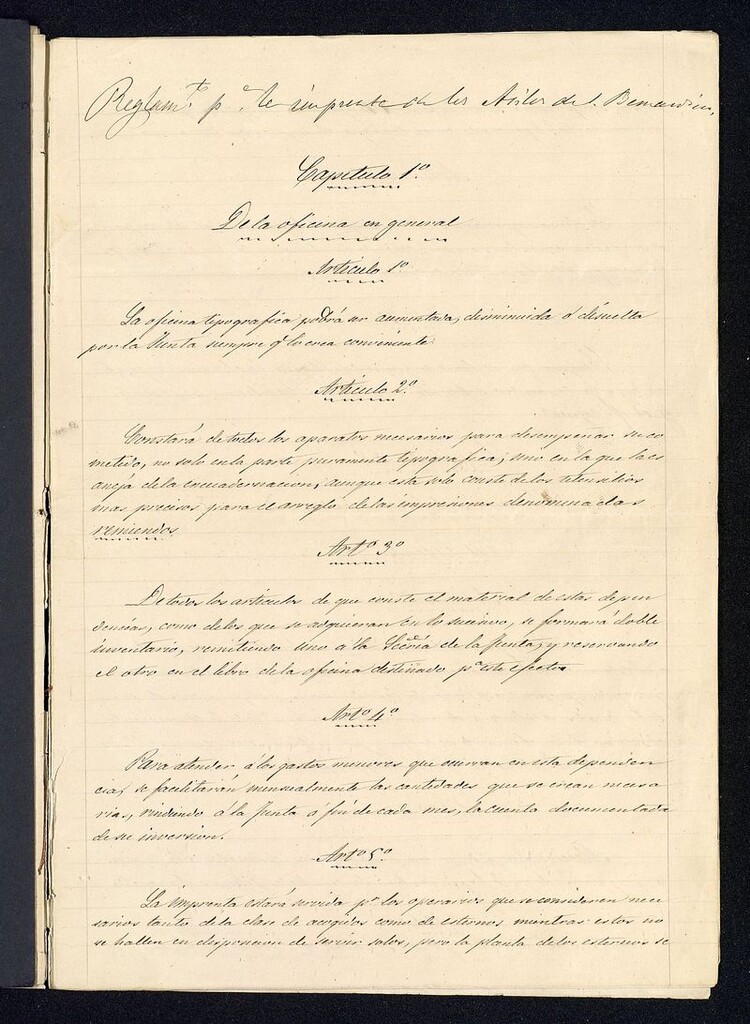 Reglamto pa la imprenta de los Asilos de S. Bernardino,
Capitulo 1º
De la oficina en general
Articulo 1º
La oficina tipografica podrá ser aumentada, disminuida ó disuelta
por la Junta siempre q lo crea conveniente.
Articulo 2º
Constará de todos los aparatos necesarios para desempeñar su co
metido, no solo en la parte puramente tipografica, sino en la que la es
aneja de la encuadernacion, aunque esta solo conste de los utensilios
mas precisos para el arreglo de las impresiones denominadas
remiendos.
Artº 3º
De todos los articulos de que conste el material de estas depen
dencias, como de los que se adquieran en lo sucesivo, se formará doble
inventario, remitiendo uno á la Secría de la Junta, y reservando
el otro en el libro de la oficina destinado pa este efecto.
Artº 4º
Para atender á los gastos menores que ocurran en esta dependen
cia, se facilitarán mensualmente las cantidades que se crean necesa
rias, rindiendo á la Junta á fin de cada mes, la cuenta documentada
de su inversion.
Artº 5º
La imprenta estará servida pr los operarios que se consideren nece
sarios tanto de la clase de acogidos como de esternos mientras estos no
se hallen en disposicion de servir solos, pero la planta de los esternos se